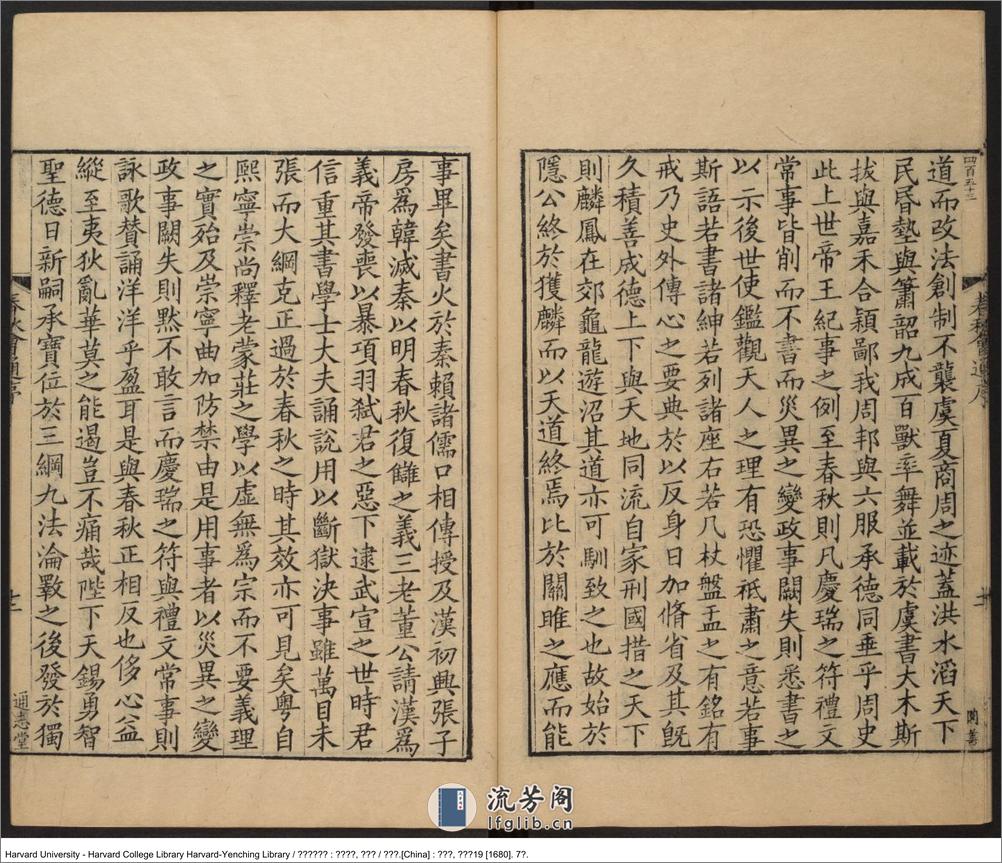 四百五十三
道而改法創制不襲虞夏商周之迹蓋洪水滔天下
民昬墊與簫韶九成百獸率舞並載於虞書大木斯
拔與嘉禾合穎鄙我周邦與六服承德同垂乎周史
此上世帝王紀事之例至春秋則凡慶瑞之符禮文
常事皆削而不書而災異之變政事闕失則悉書之
以示後世使鑑觀天人之理有恐懼祗肅之意若事
斯語若書諸紳若列諸座右若几杖盤盂之有銘有
戒乃史外傳心之要典於以反身日加脩省及其旣
久積善成德上下與天地同流自家刑國措之天下
則麟鳳在郊龜龍遊沼其道亦可馴致之也故始於
隱公終於獲麟而以天道終焉比於關雎之應而能
事畢矣書火於秦賴諸儒口相傳授及漢初興張子
房爲韓滅秦以明春秋復讎之義三老董公請漢爲
義帝發喪以暴項羽弑君之惡下逮武宣之世時君
信重其書學士大夫誦說用以斷獄決事雖萬目未
張而大綱克正過於春秋之時其效亦可見矣粤自
熙寧崇尚釋老蒙莊之學以虛無爲宗而不要義理
之實殆及崇寧曲加防禁由是用事者以災異之變
政事闕失則黙不敢言而慶瑞之符與禮文常事則
詠歌賛誦洋洋乎盈耳是與春秋正相反也侈心益
縱至夷狄亂華莫之能遏豈不痛哉陛下天錫勇智
聖德日新嗣承寶位於三綱九法淪斁之後發於獨
春秋會通序
十二
通志堂
流芳阁
lfglib.cn
Harvard University - Harvard College Library Harvard-Yenching Library / ?????? : ????, ??? / ???.[China] : ???, ???19 [1680]. 7?.